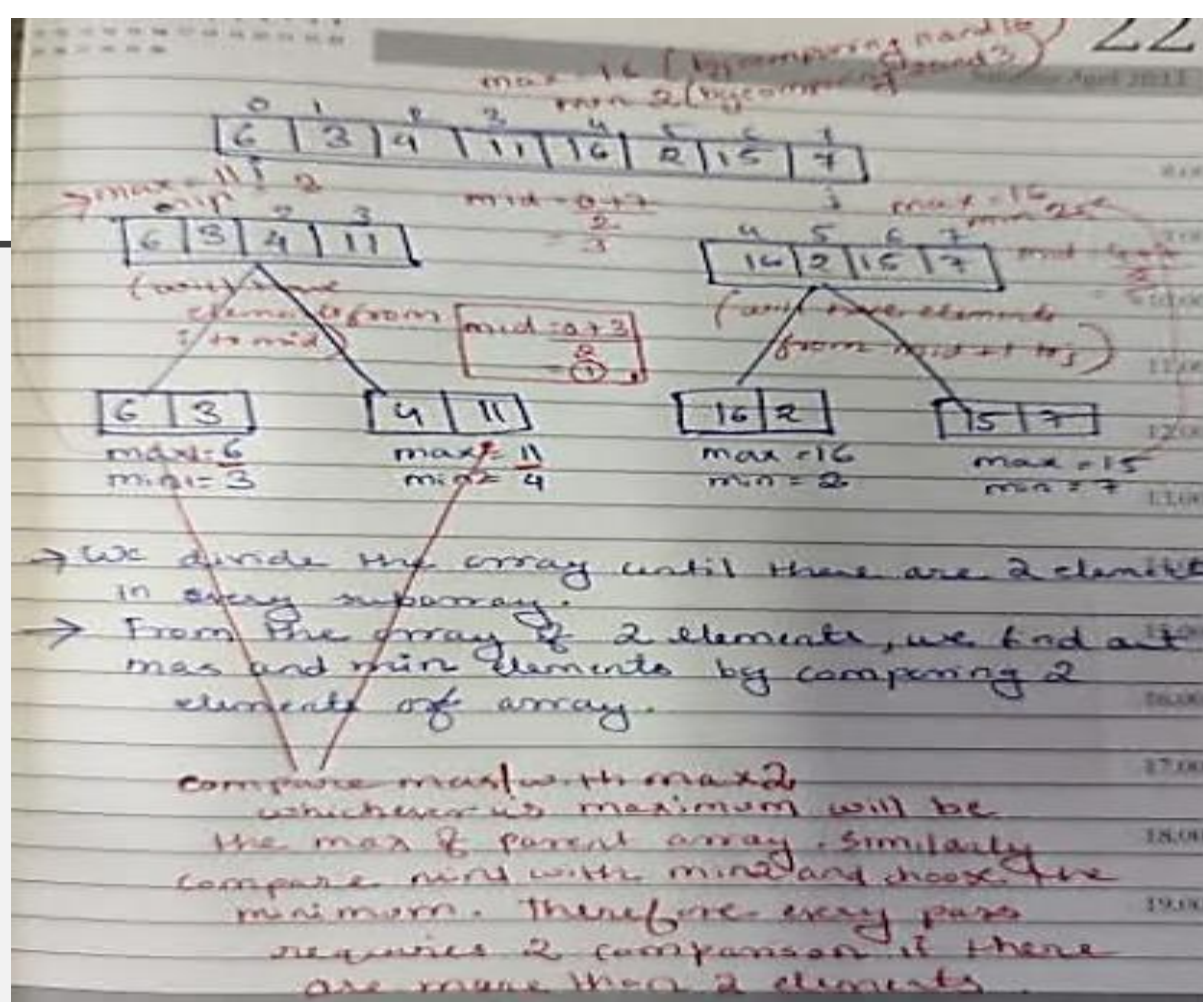 22
April
max = 16 (by comparing 11 and 16)
min 2 (by comparing 2 and 3)
0 1 2 3 4 5 6 7
6 3 4 11 16 2 15 7
i j
max = 11
mid = 0+7
2
3
max = 16
min 2
1 2 3
6 3 4 11
4 5 6 7
16 2 15 7
mid
(will have
elements from
i to mid)
mid = 0+3
2
= 1
(will have elements
from mid+1 to j)
6 3
4 11
16 2
15 7
max1 = 6
min1 = 3
max2 = 11
min2 = 4
max = 16
min = 2
max = 15
min = 7
→ We divide the array until there are 2 elements
in every subarray.
→ From the array of 2 elements, we find out
max and min elements by comparing 2
elements of array.
compare max1 with max2
whichever is maximum will be
the max of parent array. Similarly
compare min1 with min2 and choose the
minimum. Therefore every pass
requires 2 comparison if there
are more than 2 elements.
11.00
12.00
13.00
16.00
17.00
18.00
19.00